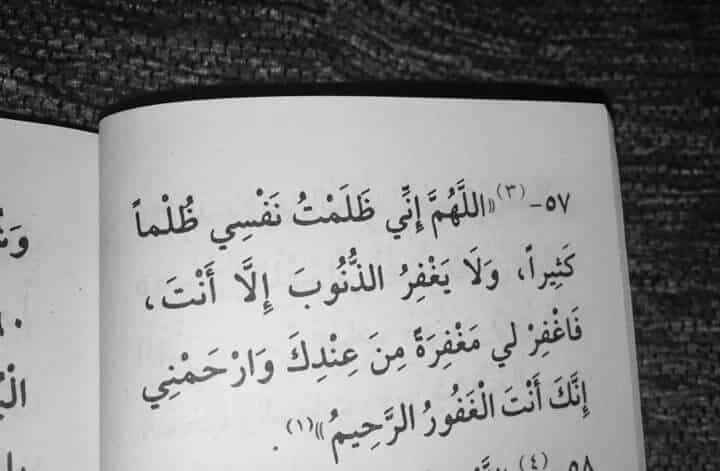 ٥٧-(٣) «اللَّهُمَّ إِنِّي ظَلَمْتُ نَفْسِي ظُلْماً
كَثِيراً، وَلَا يَغْفِرُ الذُّنُوبَ إِلَّا أَنْتَ،
فَاغْفِرْ لي مَغْفِرَةً مِنَ عِنْدِكَ وَارْحَمْنِي
إِنَّكَ أَنْتَ الْغَفُورُ الرَّحِيمُ»(١).
٥٨ (٤)